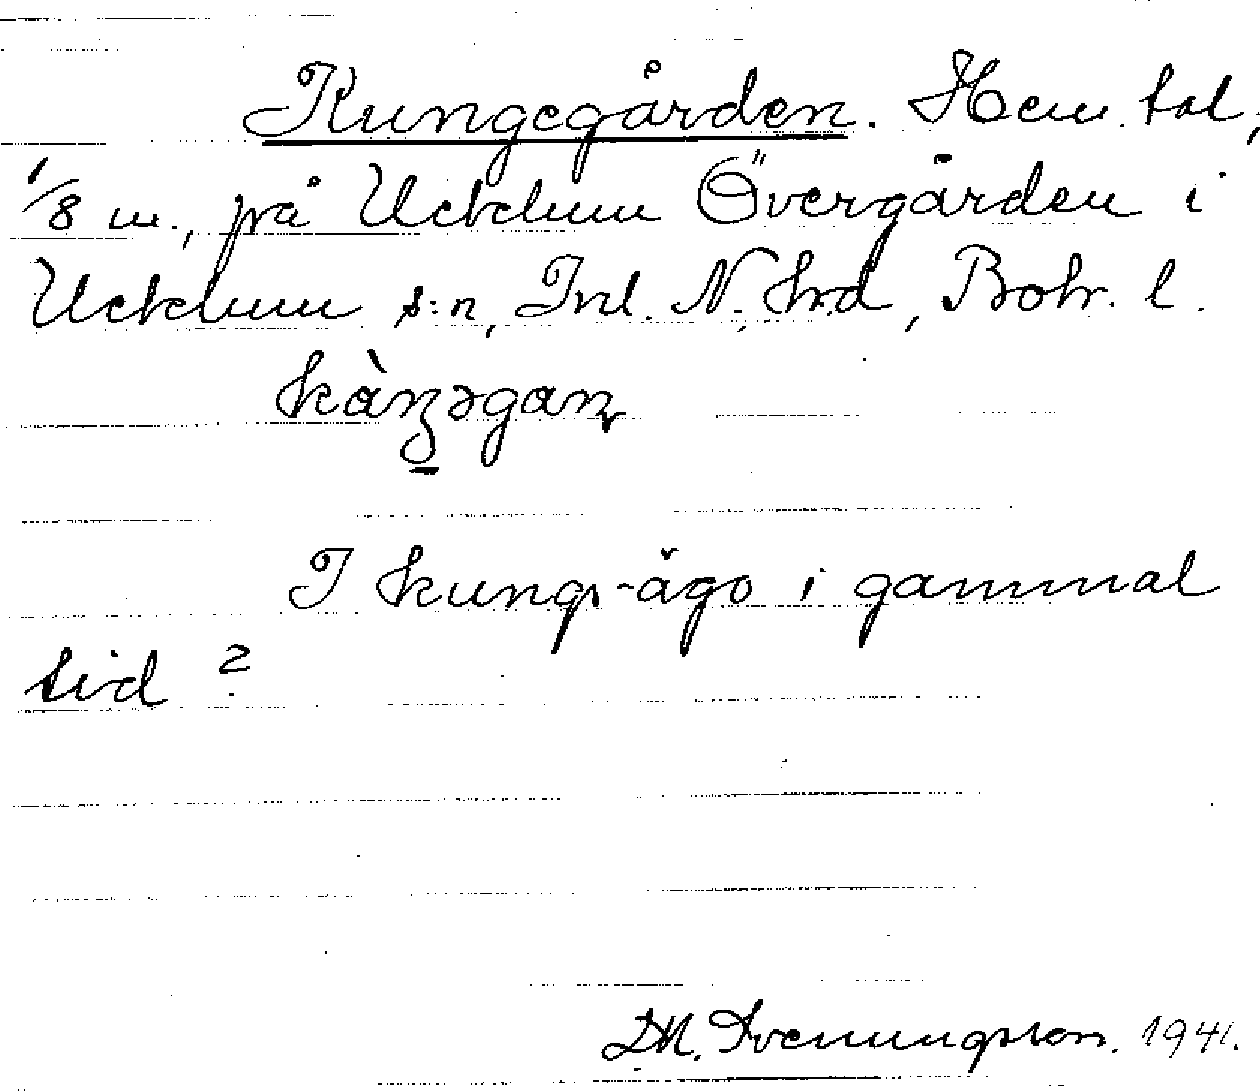 Kungegården. Hem. tal,
1/8 m., på Ucklum Övergården i
Ucklum s:n, Inl. N. hrd, Boh. l.
I kungs-ägo i gammal
tid ?
Svenungsson. 1941.